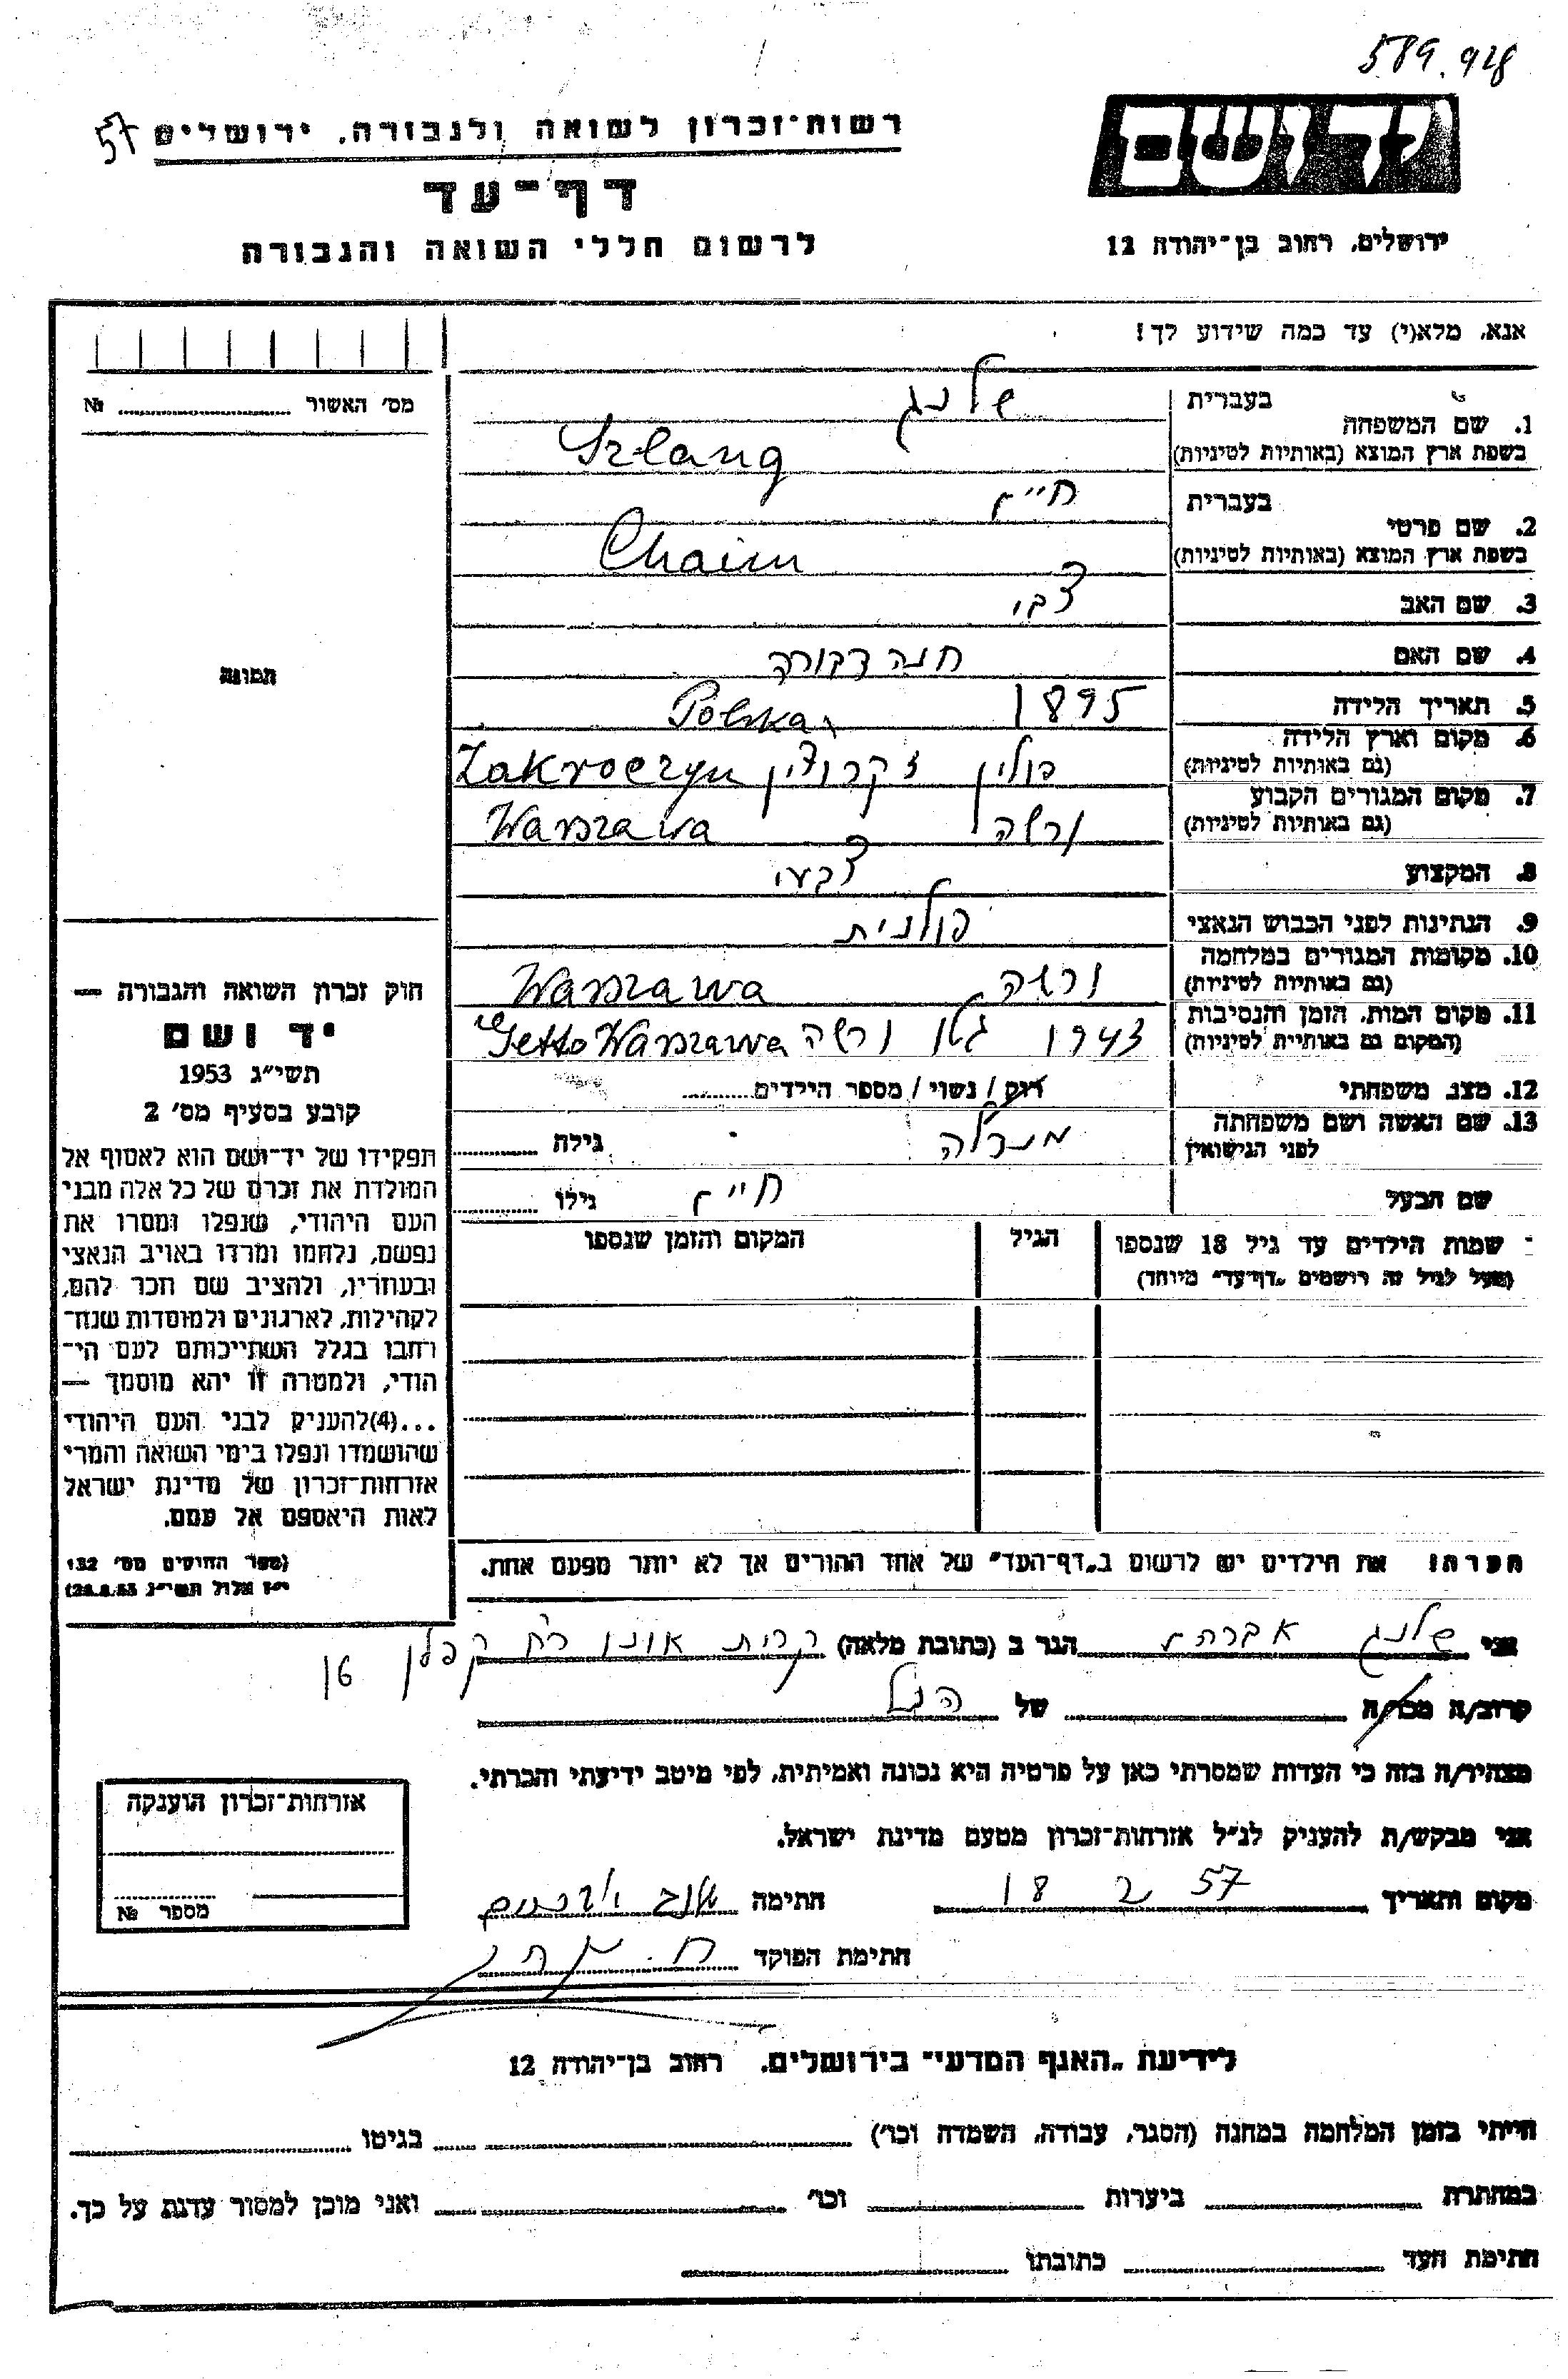 589.928
ידושם
רשות־זכרון לשואה ולגבורה, ירושלים 57
דף־עד
לרשום חללי השואה והגבורה
ירושלים, רחוב בן־יהודה 12
אנא, מלא(י) עד כמה שידוע לך!
מס׳ האשור № 
תמונה
1. שם המשפחה
בעברית שלנג
בשפת ארץ המוצא (באותיות לטיניות) Szlang
2. שם פרטי
בעברית חיים
בשפת ארץ המוצא (באותיות לטיניות) Chaim
3. שם האב צבי
4. שם האם חנה דבורה
5. תאריך הלידה 1895
6. מקום וארץ הלידה Polska
(גם באותיות לטיניות) פולין זקרוצין Zakroczyn
7. מקום המגורים הקבוע
(גם באותיות לטיניות) ורשה Warszawa
8. המקצוע צבעי
9. הנתינות לפני הכבוש הנאצי פולנית
10. מקומות המגורים במלחמה
(גם באותיות לטיניות) ורשה Warszawa
11. מקום המות, הזמן והנסיבות
(המקום גם באותיות לטיניות) 1943 גטו ורשה Getto Warszawa
12. מצב משפחתי רווק / נשוי / מספר הילדים
13. שם האשה ושם משפחתה
לפני הנישואין מנדלה גילה
שם הבעל חיים גילו
שמות הילדים עד גיל 18 שנספו הגיל המקום והזמן שנספו
(מעל לגיל זה רושמים „דף־עד״ מיוחד)
חוק זכרון השואה והגבורה —
יד ושם
תשי״ג 1953
קובע בסעיף מס׳ 2
תפקידו של יד־ושם הוא לאסוף אל
המולדת את זכרם של כל אלה מבני
העם היהודי, שנפלו ומסרו את
נפשם, נלחמו ומרדו באויב הנאצי
ובעוזריו, ולהציב שם וזכר להם,
לקהילות, לארגונים ולמוסדות שנח־
רבו בגלל השתייכותם לעם הי־
הודי, ולמטרה זו יהא מוסמך —
...(4) להעניק לבני העם היהודי
שהושמדו ונפלו בימי השואה והמרי
אזרחות־זכרון של מדינת ישראל
לאות היאספם אל עמם.
(ספר החוקים מס׳ 132
י״ז אלול תשי״ג 28.8.53)
הערה: את הילדים יש לרשום ב„דף־העד״ של אחד ההורים אך לא יותר מפעם אחת.
אני שלנג אברהם הגר ב (כתובת מלאה) קרית אונו רח קפלן
קרוב/ה מכר/ה של הנל
מצהיר/ה בזה כי העדות שמסרתי כאן על פרטיה היא נכונה ואמיתית, לפי מיטב ידיעתי והכרתי.
אני מבקש/ת להעניק לנ״ל אזרחות־זכרון מטעם מדינת ישראל.
מקום ותאריך 18 2 57 חתימה
חתימת הפוקד
אזרחות־זכרון הוענקה
מספר №
לידיעת „האגף המדעי״ בירושלים, רחוב בן־יהודה 12
הייתי בזמן המלחמה במחנה (הסגר, עבודה, השמדה וכו׳) בגיטו
במחתרת ביערות וכו׳ ואני מוכן למסור עדות על כך.
חתימת העד כתובתו